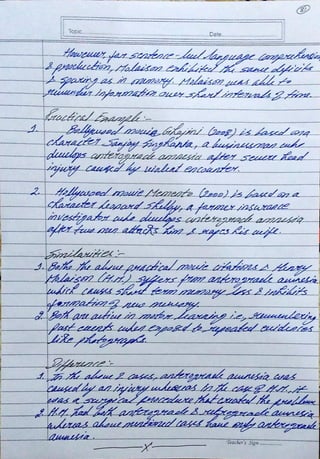 Topic Date
However, for sentence-level language comprehension
& production, Molaison exhibited the same deficits
& sparing as in memory. Molaison was able to
remember information over short intervals of time.
Practical Example:-
1. Bollywood movie Ghajini (2008) is based on a
character Sanjay Singhania, a businessman who
develops anterograde amnesia after severe head
injury caused by violent encounter.
2. Hollywood movie Memento (2000) is based on a
character Leonard Shelby, a former insurance
investigator who develops anterograde amnesia
after two men attacks him & rapes his wife.
Similarities:-
1. Both the above practical movie citations & Henry
Molaison (H.M.) suffers from anterograde amnesia
which causes short term memory loss & inhibits
formation of new memory.
2. Both are active in motor learning i.e, remembering
past events when exposed to repeated evidences
like photographs.
Difference:-
1. In the above 2 cases, anterograde amnesia was
caused by an injury whereas in the case of H.M., it
was a surgical procedure that created the problem.
2. H.M. had both anterograde & retrograde amnesia
whereas above mentioned cases have only anterograde
amnesia.
x
Teacher's Sign